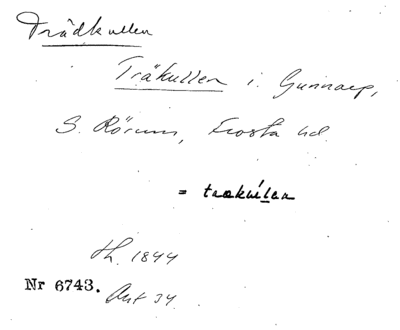 Trädkullen
Träkullen i Gunnarp,
S. Rörum, Frosta hd.
= trækúlan
th. 1844
Nr 6743. Ant 34